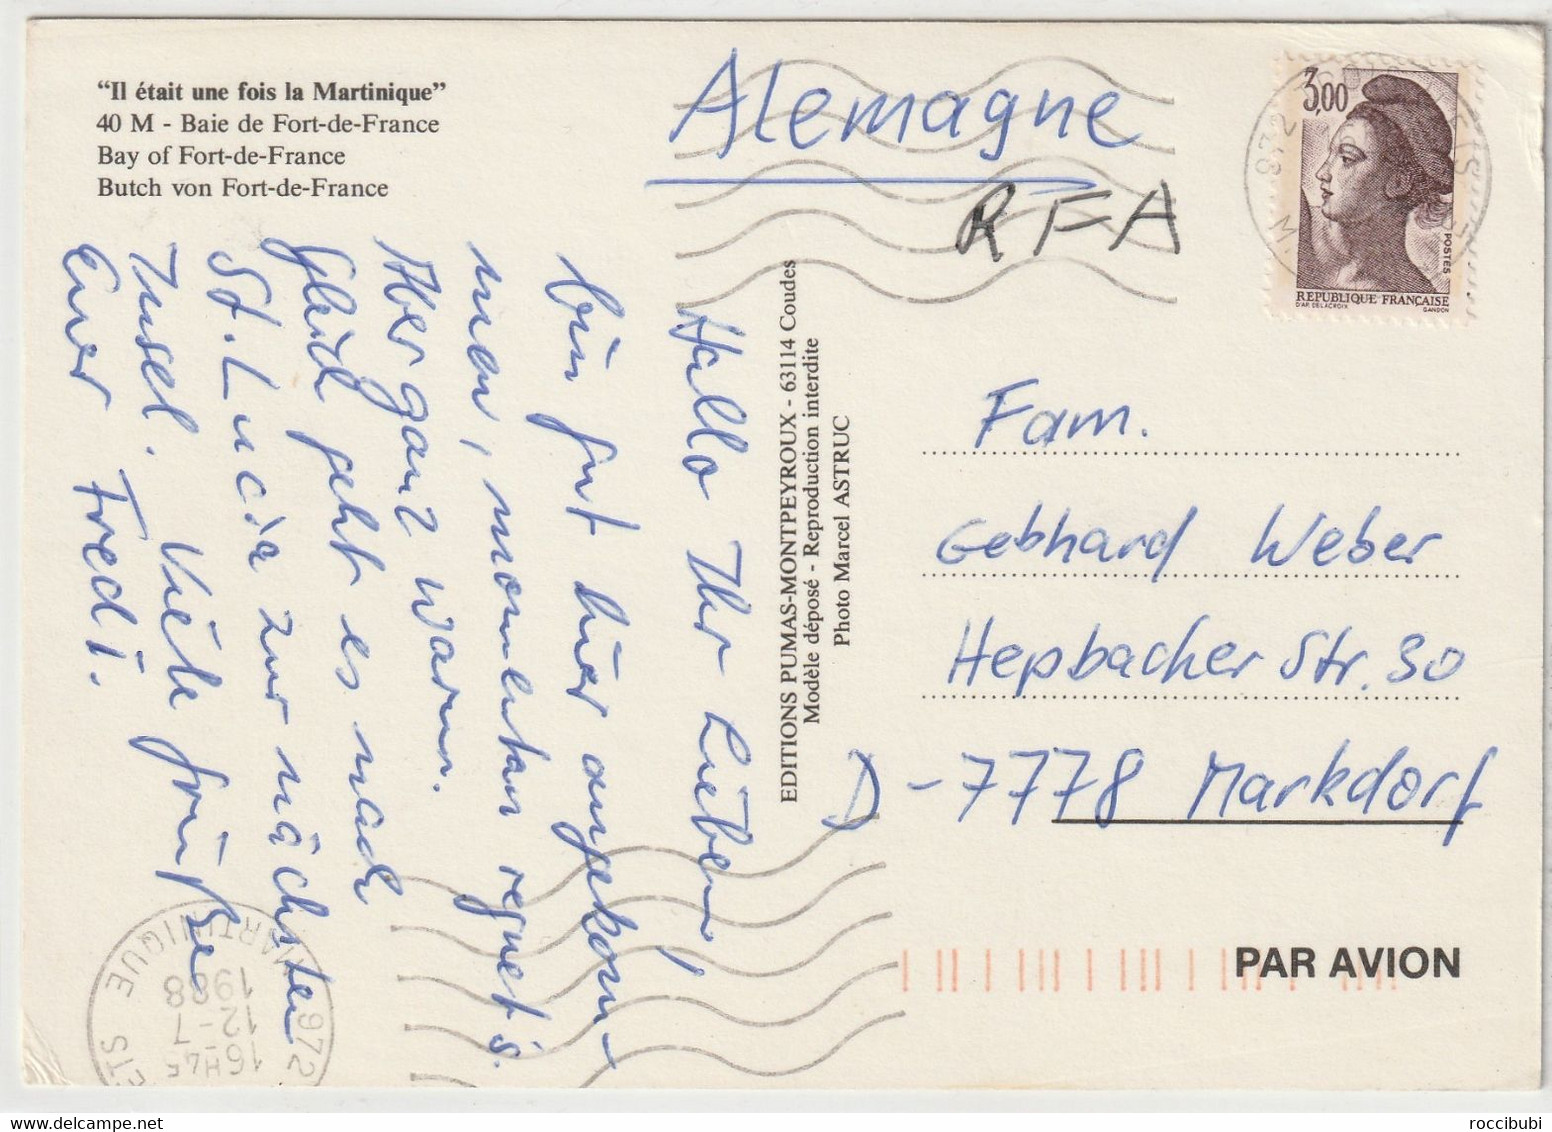 "Il était une fois la Martinique"
40 M - Baie de Fort-de-France
Bay of Fort-de-France
Butch von Fort-de-France
Alemagne
RFA
3,00
POSTES
REPUBLIQUE FRANÇAISE
D'AP. DELACROIX
GANDON
Hallo Ihr Lieben,
bin gut hier angekom-
men, momentan regnet's.
Aber ganz warm.
Gleich geht es nach
St. Lucia zur nächsten
Insel. Viele Grüße
Euer Fredi.
EDITIONS PUMAS-MONTPEYROUX - 63114 Coudes
Modèle déposé - Reproduction interdite
Photo Marcel ASTRUC
Fam.
Gebhard Weber
Hepbacher Str. 30
D-7778 Markdorf
PAR AVION
972
MARTINIQUE
16H45
12-7
1988
roccibubi